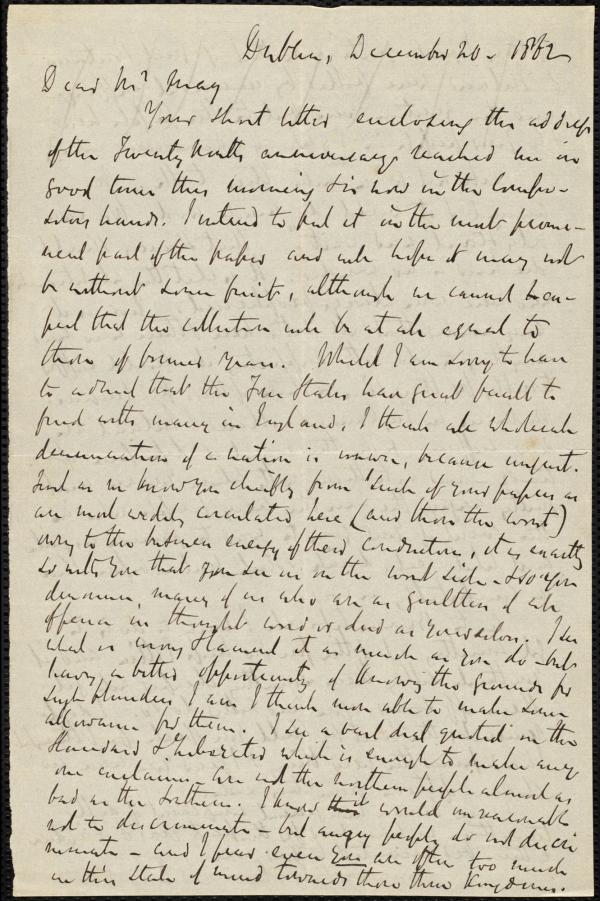 Dublin, December 20 - 1862
Dear Mr May
Your short letter enclosing the address
of the Twenty Ninth anniversary reached me in
good time this morning & is now in the Compo-
sitors hands. I intend to put it in the most promi-
nent part of the paper and we hope it may not
be without some fruit, although we cannot ex-
pect that the collection will be at all equal to
those of former years. Whilst I am sorry to have
to admit that the Free States have great fault to
find with many in England, I think all wholesale
denunciation of a nation is unwise, because unjust.
Just as we know you chiefly from such of your papers as
are most widely circulated here (and those the worst)
owing to the business energy of their conductors, it is exactly
so with you that you see us on the worst side - & so you
denounce, many of us who are as guiltless of all
offence in thought word or deed as yourselves. I see
what is wrong & lament it as much as you do - but
having a better opportunity of knowing the grounds for
such blunders I am I think more able to make some
allowance for them. I see a vast deal quoted in the
Standard & Liberator which is enough to make any
one exclaim - Are not the northern people almost as
bad as the Southern. I know it would unreasonable
not to discriminate - but angry people do not discri
minate - and I fear even you are often too much
in this state of mind towards these three Kingdoms.